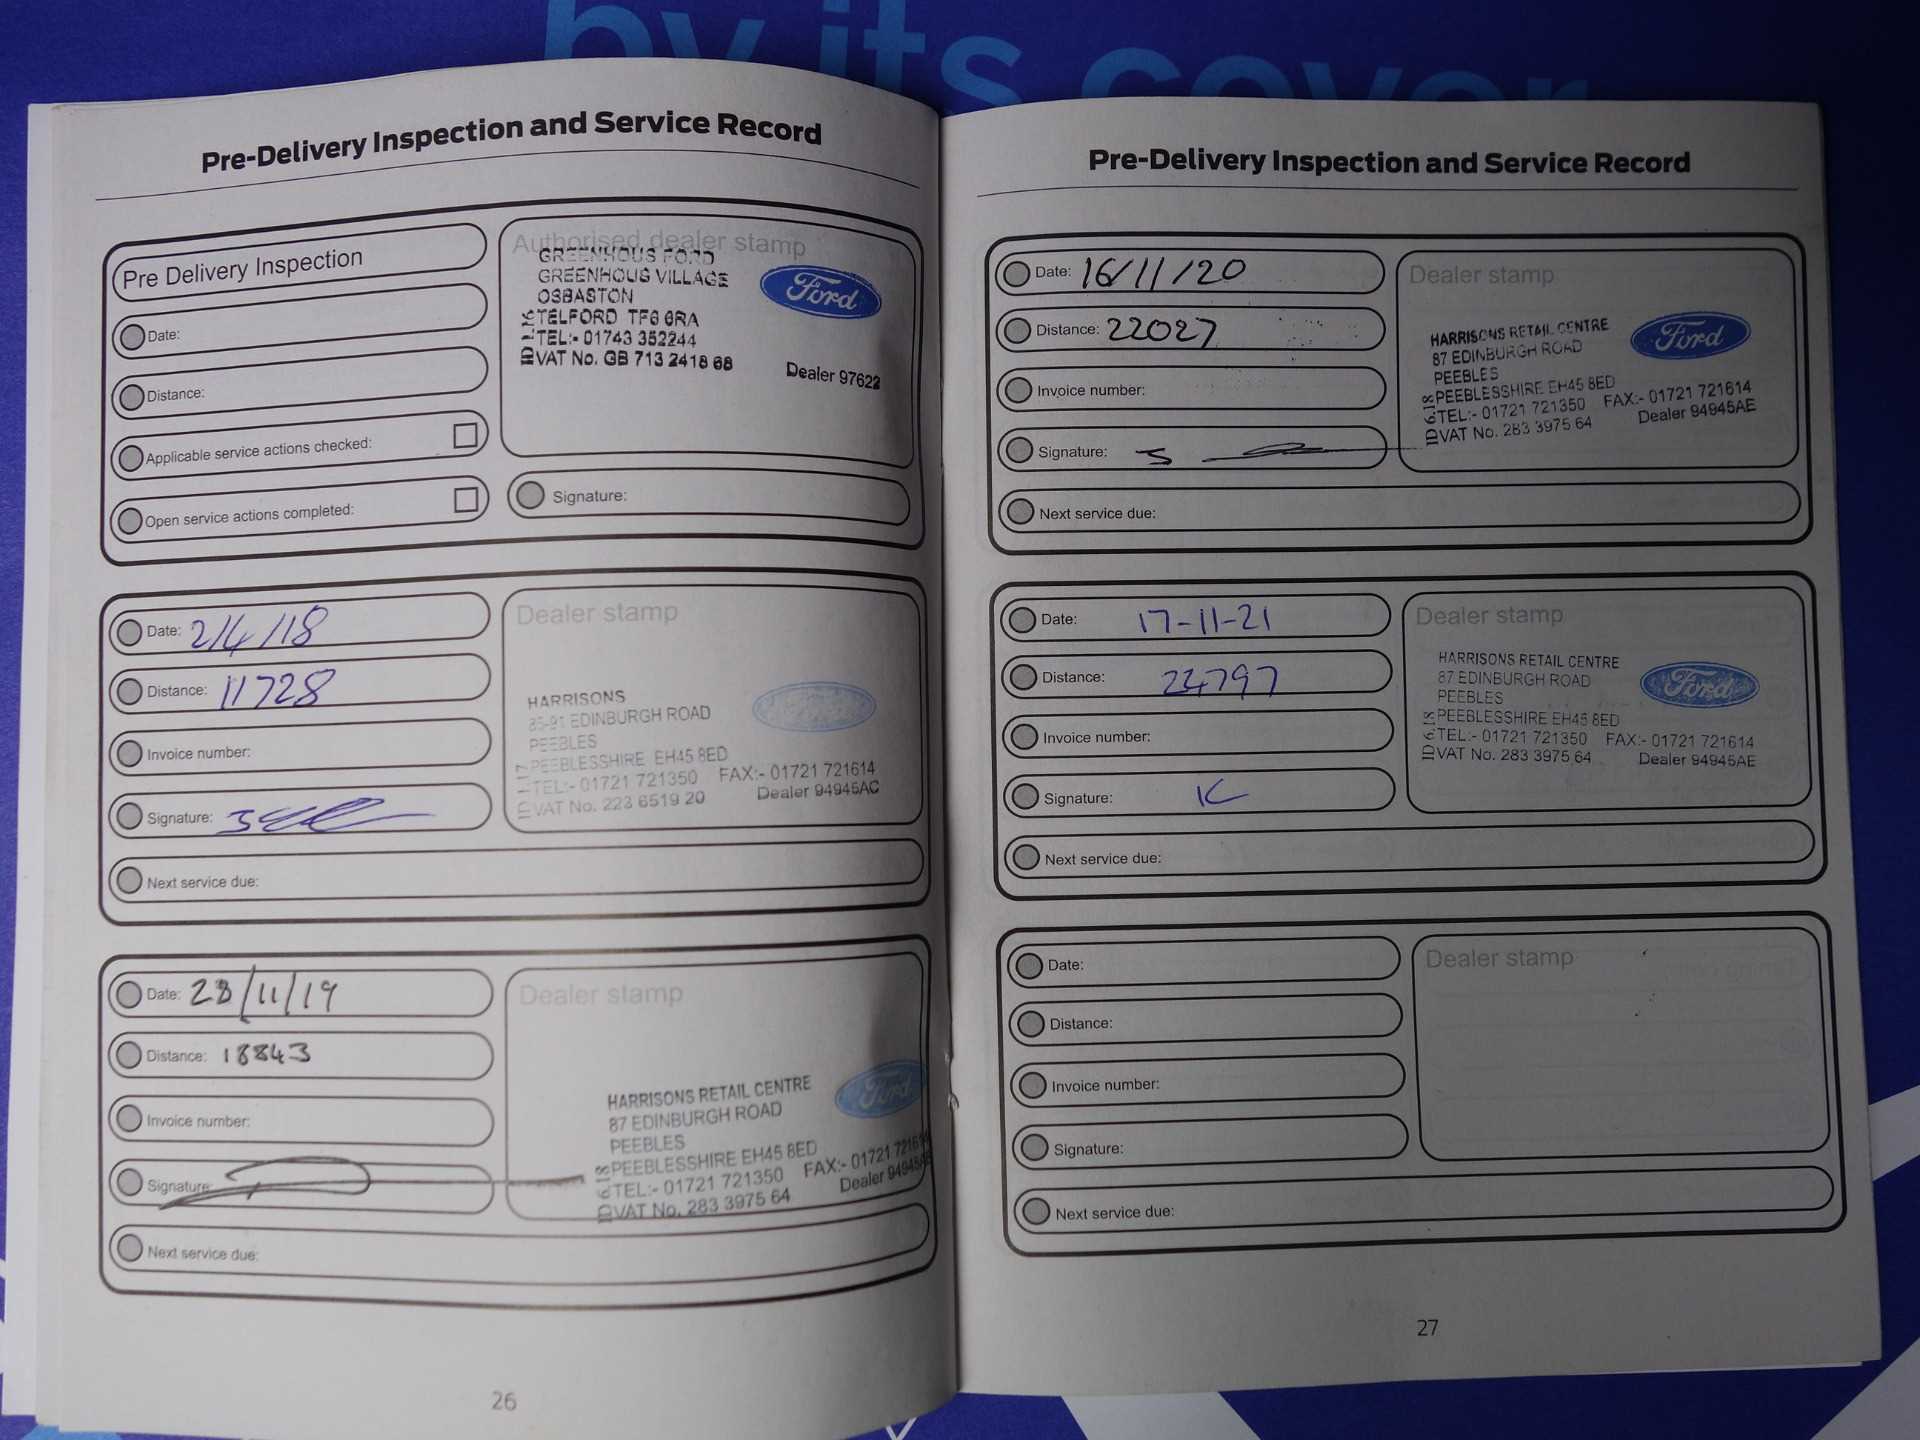 by its cover
Pre-Delivery Inspection and Service Record
Pre Delivery Inspection
Date:
Distance:
Applicable service actions checked:
Open service actions completed:
Authorised dealer stamp
GREENHOUS FORD
GREENHOUS VILLAGE
OSBASTON
TELFORD TF6 6RA
TEL:- 01743 352244
VAT No. GB 713 2418 68
Ford
Dealer 97622
Signature:
Date: 2/4/18
Distance: 11728
Invoice number:
Signature:
Next service due:
Dealer stamp
HARRISONS
85-91 EDINBURGH ROAD
PEEBLES
PEEBLESSHIRE EH45 8ED
TEL:- 01721 721350 FAX:- 01721 721614
VAT No. 223 6519 20 Dealer 94945AC
Date: 28/11/19
Distance: 18843
Invoice number:
Signature:
Next service due:
Dealer stamp
HARRISONS RETAIL CENTRE
87 EDINBURGH ROAD
PEEBLES
PEEBLESSHIRE EH45 8ED
TEL:- 01721 721350 FAX:- 01721 721614
VAT No. 283 3975 64 Dealer 94945AE
Ford
26
Pre-Delivery Inspection and Service Record
Date: 16/11/20
Distance: 22027
Invoice number:
Signature:
Next service due:
Dealer stamp
HARRISONS RETAIL CENTRE
87 EDINBURGH ROAD
PEEBLES
PEEBLESSHIRE EH45 8ED
TEL:- 01721 721350 FAX:- 01721 721614
VAT No. 283 3975 64 Dealer 94945AE
Ford
Date: 17-11-21
Distance: 24797
Invoice number:
Signature: K
Next service due:
Dealer stamp
HARRISONS RETAIL CENTRE
87 EDINBURGH ROAD
PEEBLES
PEEBLESSHIRE EH45 8ED
TEL:- 01721 721350 FAX:- 01721 721614
VAT No. 283 3975 64 Dealer 94945AE
Ford
Date:
Distance:
Invoice number:
Signature:
Next service due:
Dealer stamp
27